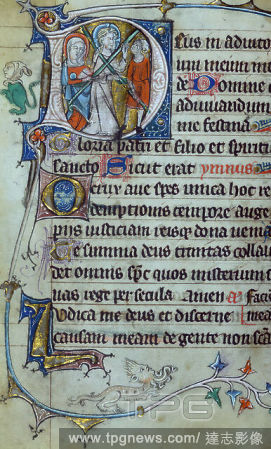 eus in adiuto
um meum in
de Domine
adiuuandum
me festina
Gloria patri et filio et spiritu
sancto Sicut erat ymnus
O crux aue spes unica hoc
passionis tempore auge
pijs iusticiam reisque dona uenia
Te summa deus trinitas collau
det omnis spc quos misterium
uas rege per secula Amen
Iudica me deus et discerne
causam meam de gente non
TPG
www.tpgnews.com/ 達志影像